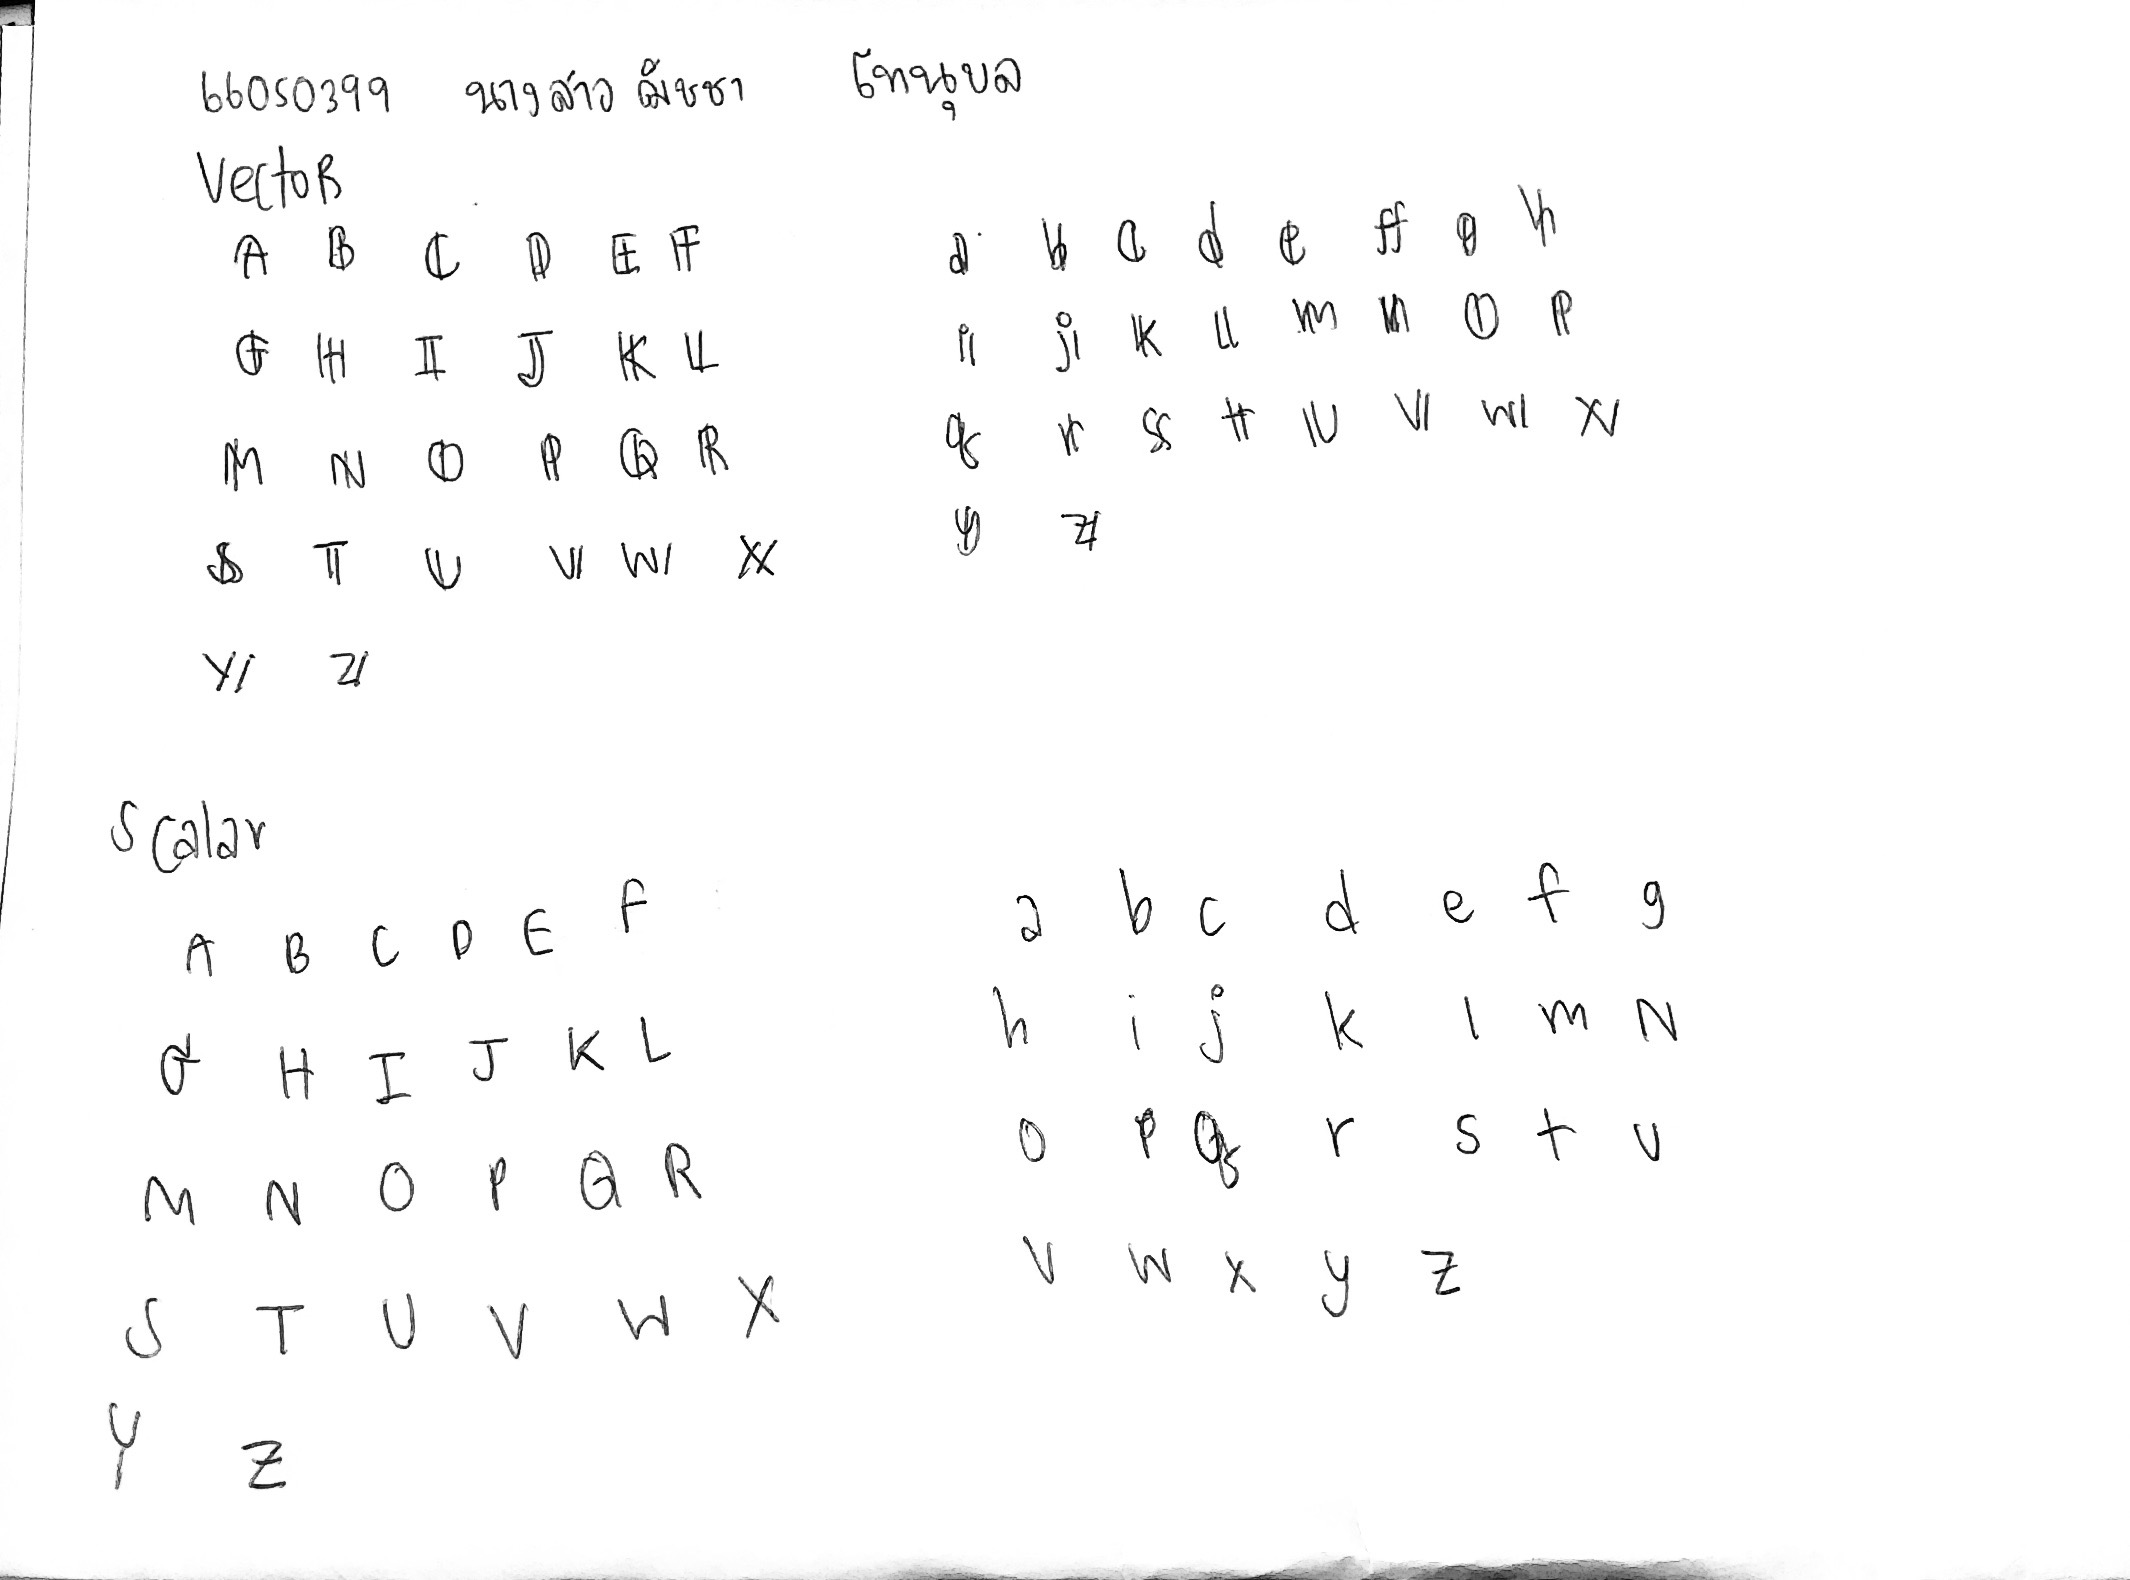 66050399 นางสาว ณัชชา โทนุบล
Vector
A B C D E F
G H I J K L
M N O P Q R
S T U V W X
Y Z
a b c d e f g h
i j k l m n o p
q r s t u v w x
y z
Scalar
A B C D E F
G H I J K L
M N O P Q R
S T U V W X
Y Z
a b c d e f g
h i j k l m N
o p q r s t u
v w x y z